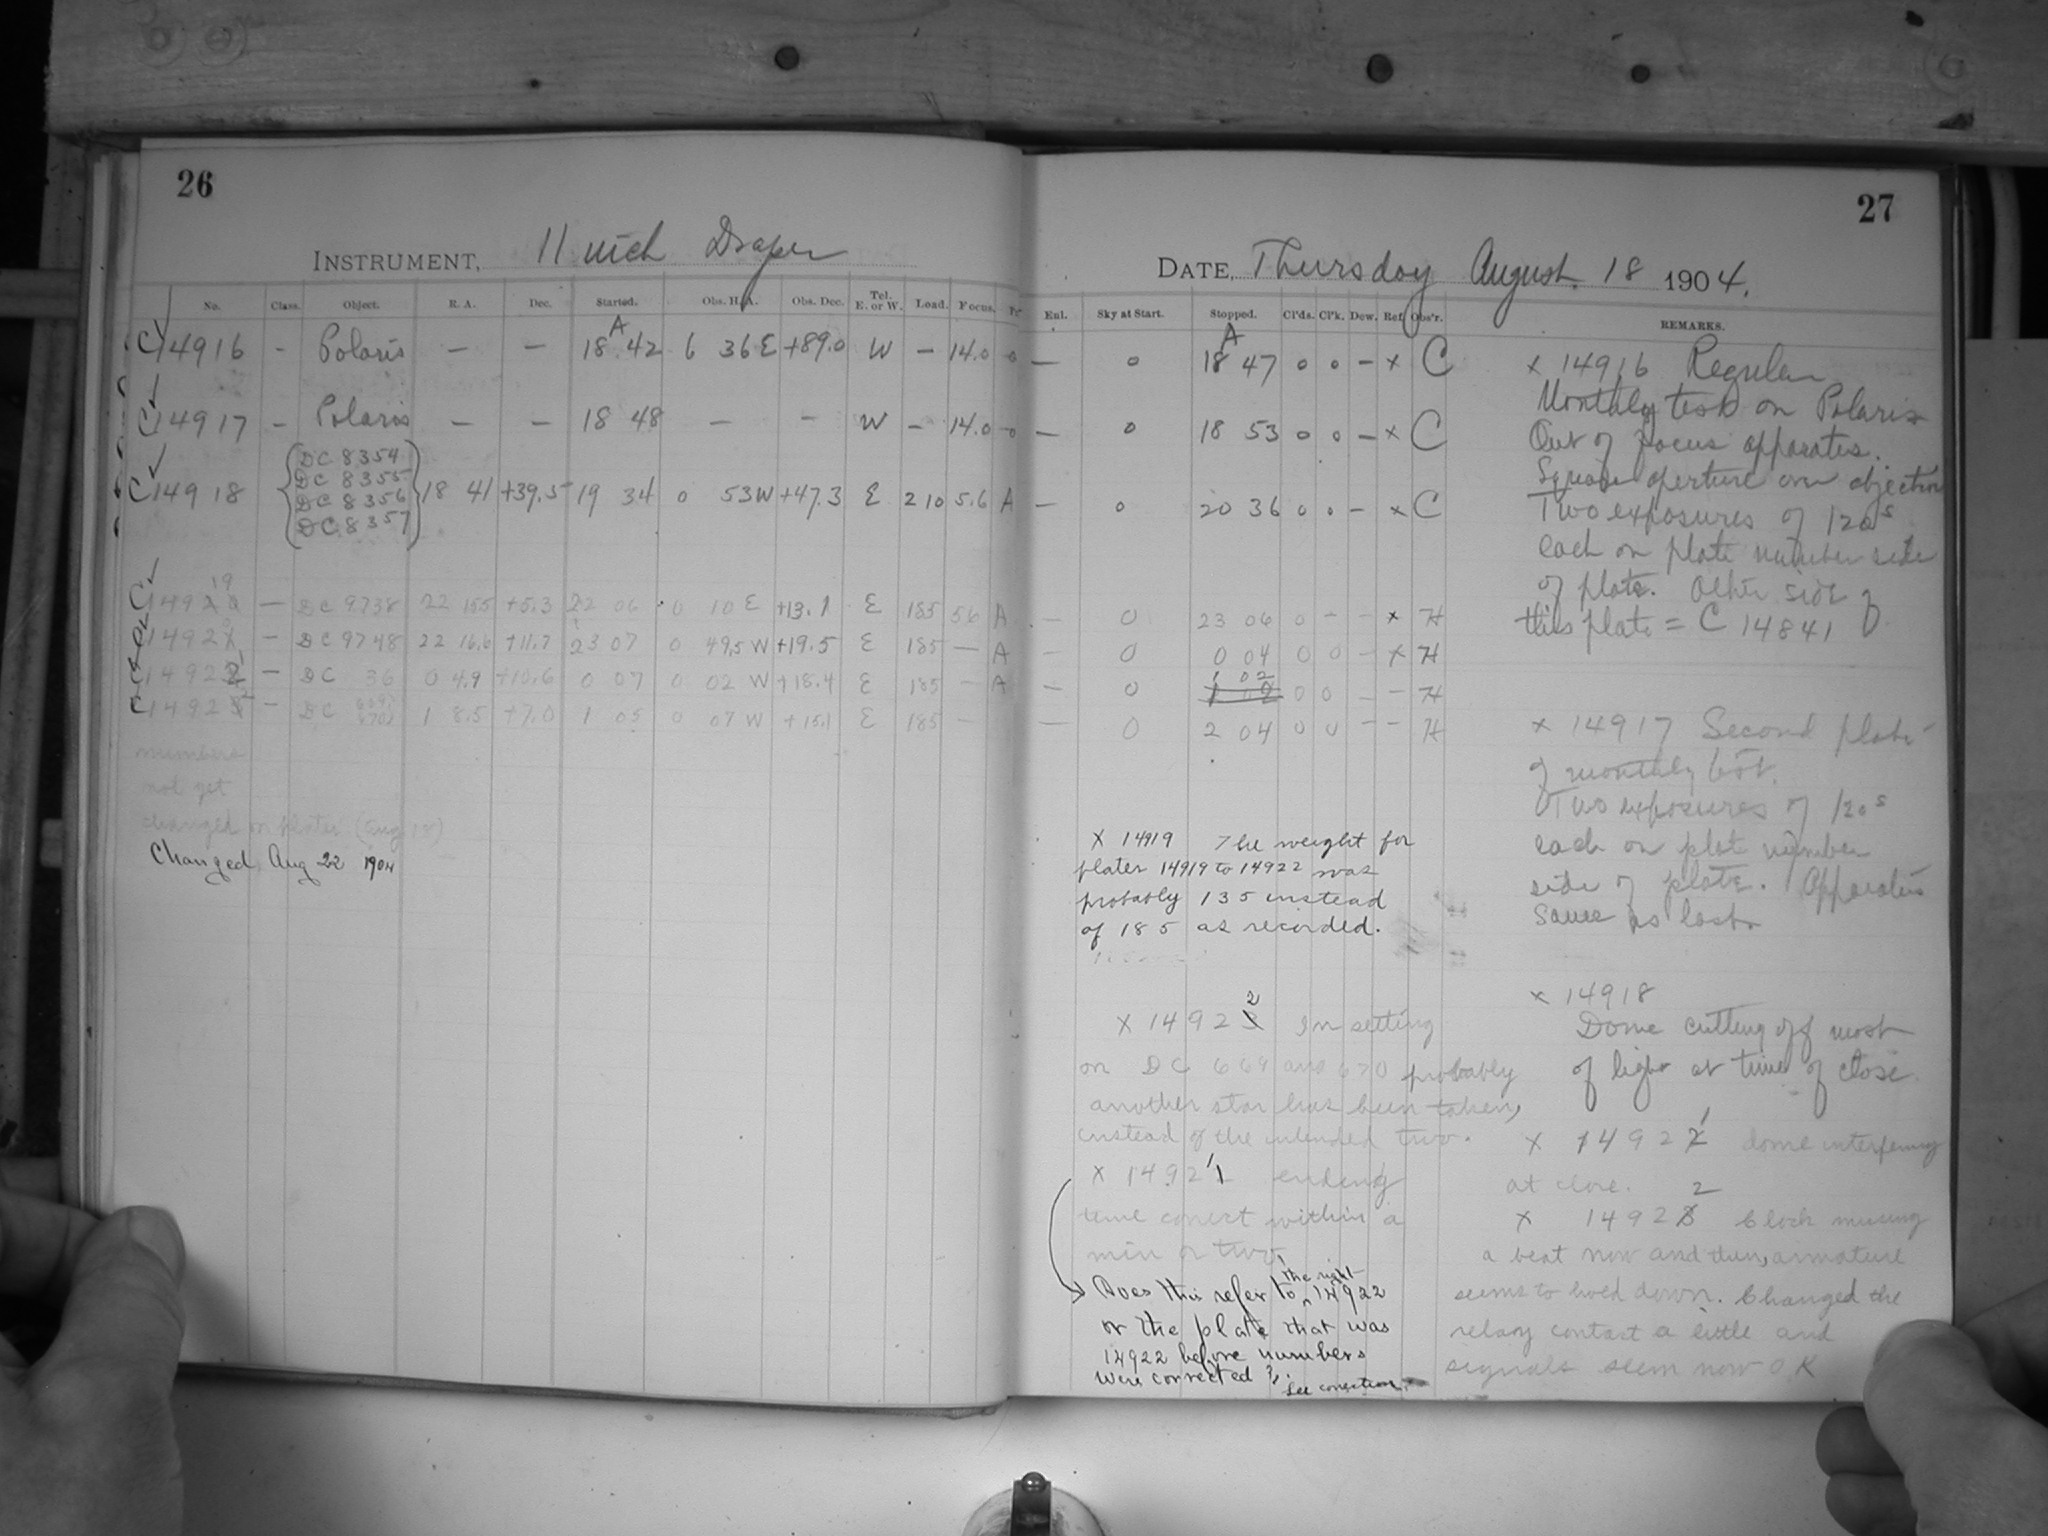 26
INSTRUMENT, 11 inch Draper
No. Class. Object. R. A. Dec. Started. Obs. H. A. Obs. Dec. Tel. E. or W. Load. Focus.
C 14916 - Polaris — — 18 A 42 6 36 E +89.0 W - 14.0 0
C 14917 - Polaris — — 18 48 — — W - 14.0 0
C 14918 DC 8354
DC 8355
DC 8356
DC 8357
18 41 +39.5 19 34 0 53 W +47.3 E 210 5.6 A
C 14919 — DC 9738 22 15.5 +5.3 22 06 0 10 E +13.1 E 185 5.6 A
C 14920 — DC 9748 22 16.6 +11.7 23 07 0 49.5 W +19.5 E 185 — A
C 14921 — DC 36 0 4.9 +10.6 0 07 0 02 W +18.4 E 185 — A
C 14922 — DC 1 8.5 +7.0 1 05 0 07 W +15.1 E 185 —
numbers
not yet
changed on plates (Aug 18)
Changed Aug 22 1904
27
DATE, Thursday August. 18 1904.
Eul. Sky at Start. Stopped. Cl'ds. Cl'k. Dew. Ref. Obs'r. REMARKS.
— 0 18 A 47 0 0 — x C
— 0 18 53 0 0 — x C
— 0 20 36 0 0 — x C
— 0 23 06 0 — — x H
— 0 0 04 0 0 — x H
— 0 1 02 0 0 — — H
— 0 2 04 0 0 — — H
x 14919 The weight for
plates 14919 to 14922 was
probably 135 instead
of 185 as recorded.
x 14922 In setting
on DC 669 and 670 probably
another star has been taken,
instead of the intended two.
x 14921 ending
time correct within a
min or two.
Does this refer to the right 14922
or the plate that was
14922 before numbers
were corrected?
See correction.
x 14916 Regular
Monthly test on Polaris
Out of focus apparatus.
Square aperture over objective
Two exposures of 120s
each on plate number side
of plate. Other side of
this plate = C 14841
x 14917 Second plate
of monthly test.
Two exposures of 120s
each on plate number
side of plate. Apparatus
same as last.
x 14918
Dome cutting off most
of light at time of close.
x 14921 dome interfering
at close.
x 14922 Clock missing
a beat now and then, armature
seems to hold down. Changed the
relay contact a little and
signals seem now OK